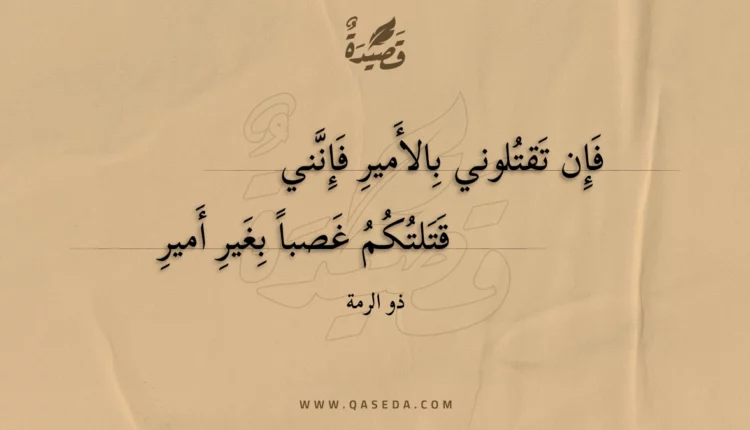 قَصِيدَةٌ
فَإِن تَقتُلوني بِالأَميرِ فَإِنَّني
قَتَلتُكُمُ غَصباً بِغَيرِ أَميرِ
ذو الرمة
WWW.QASEDA.COM